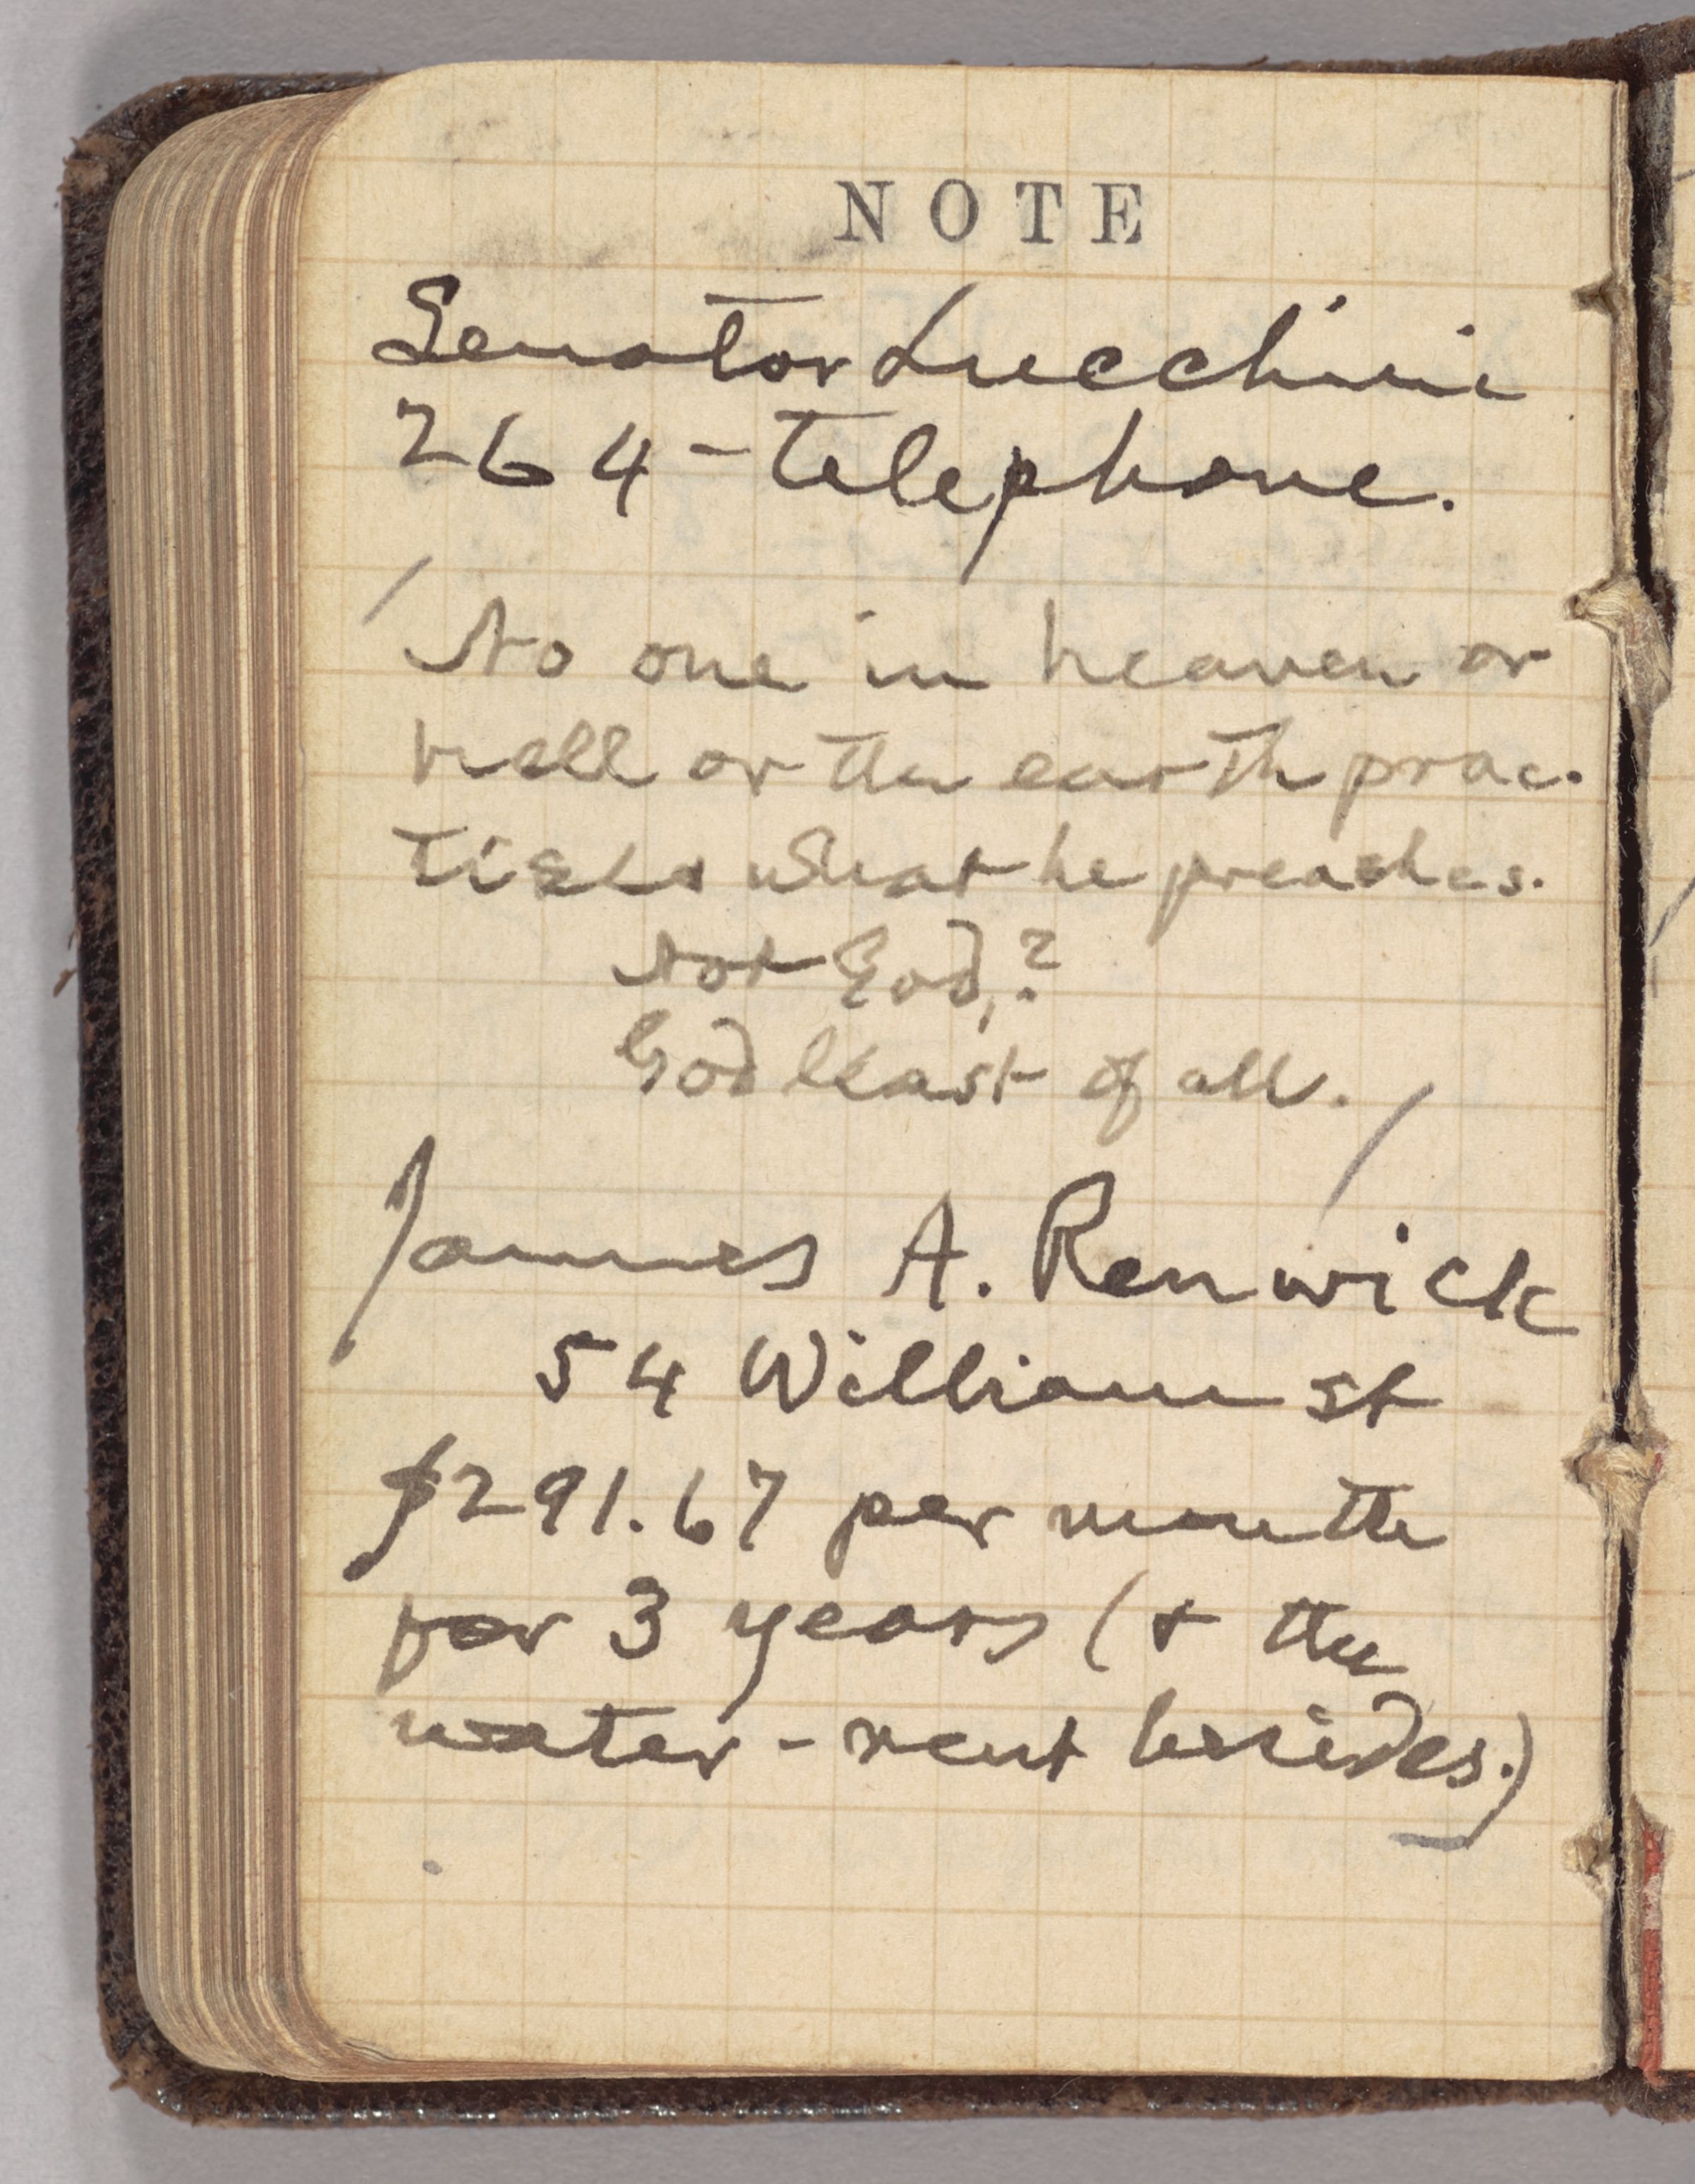 NOTE
Senator Lucchini
264 - telephone.
No one in heaven or
hell or the earth prac-
tises what he preaches.
Not God,?
God least of all.
James A. Renwick
54 William st
$291.67 per month
for 3 years (+ the
water-rent besides.)